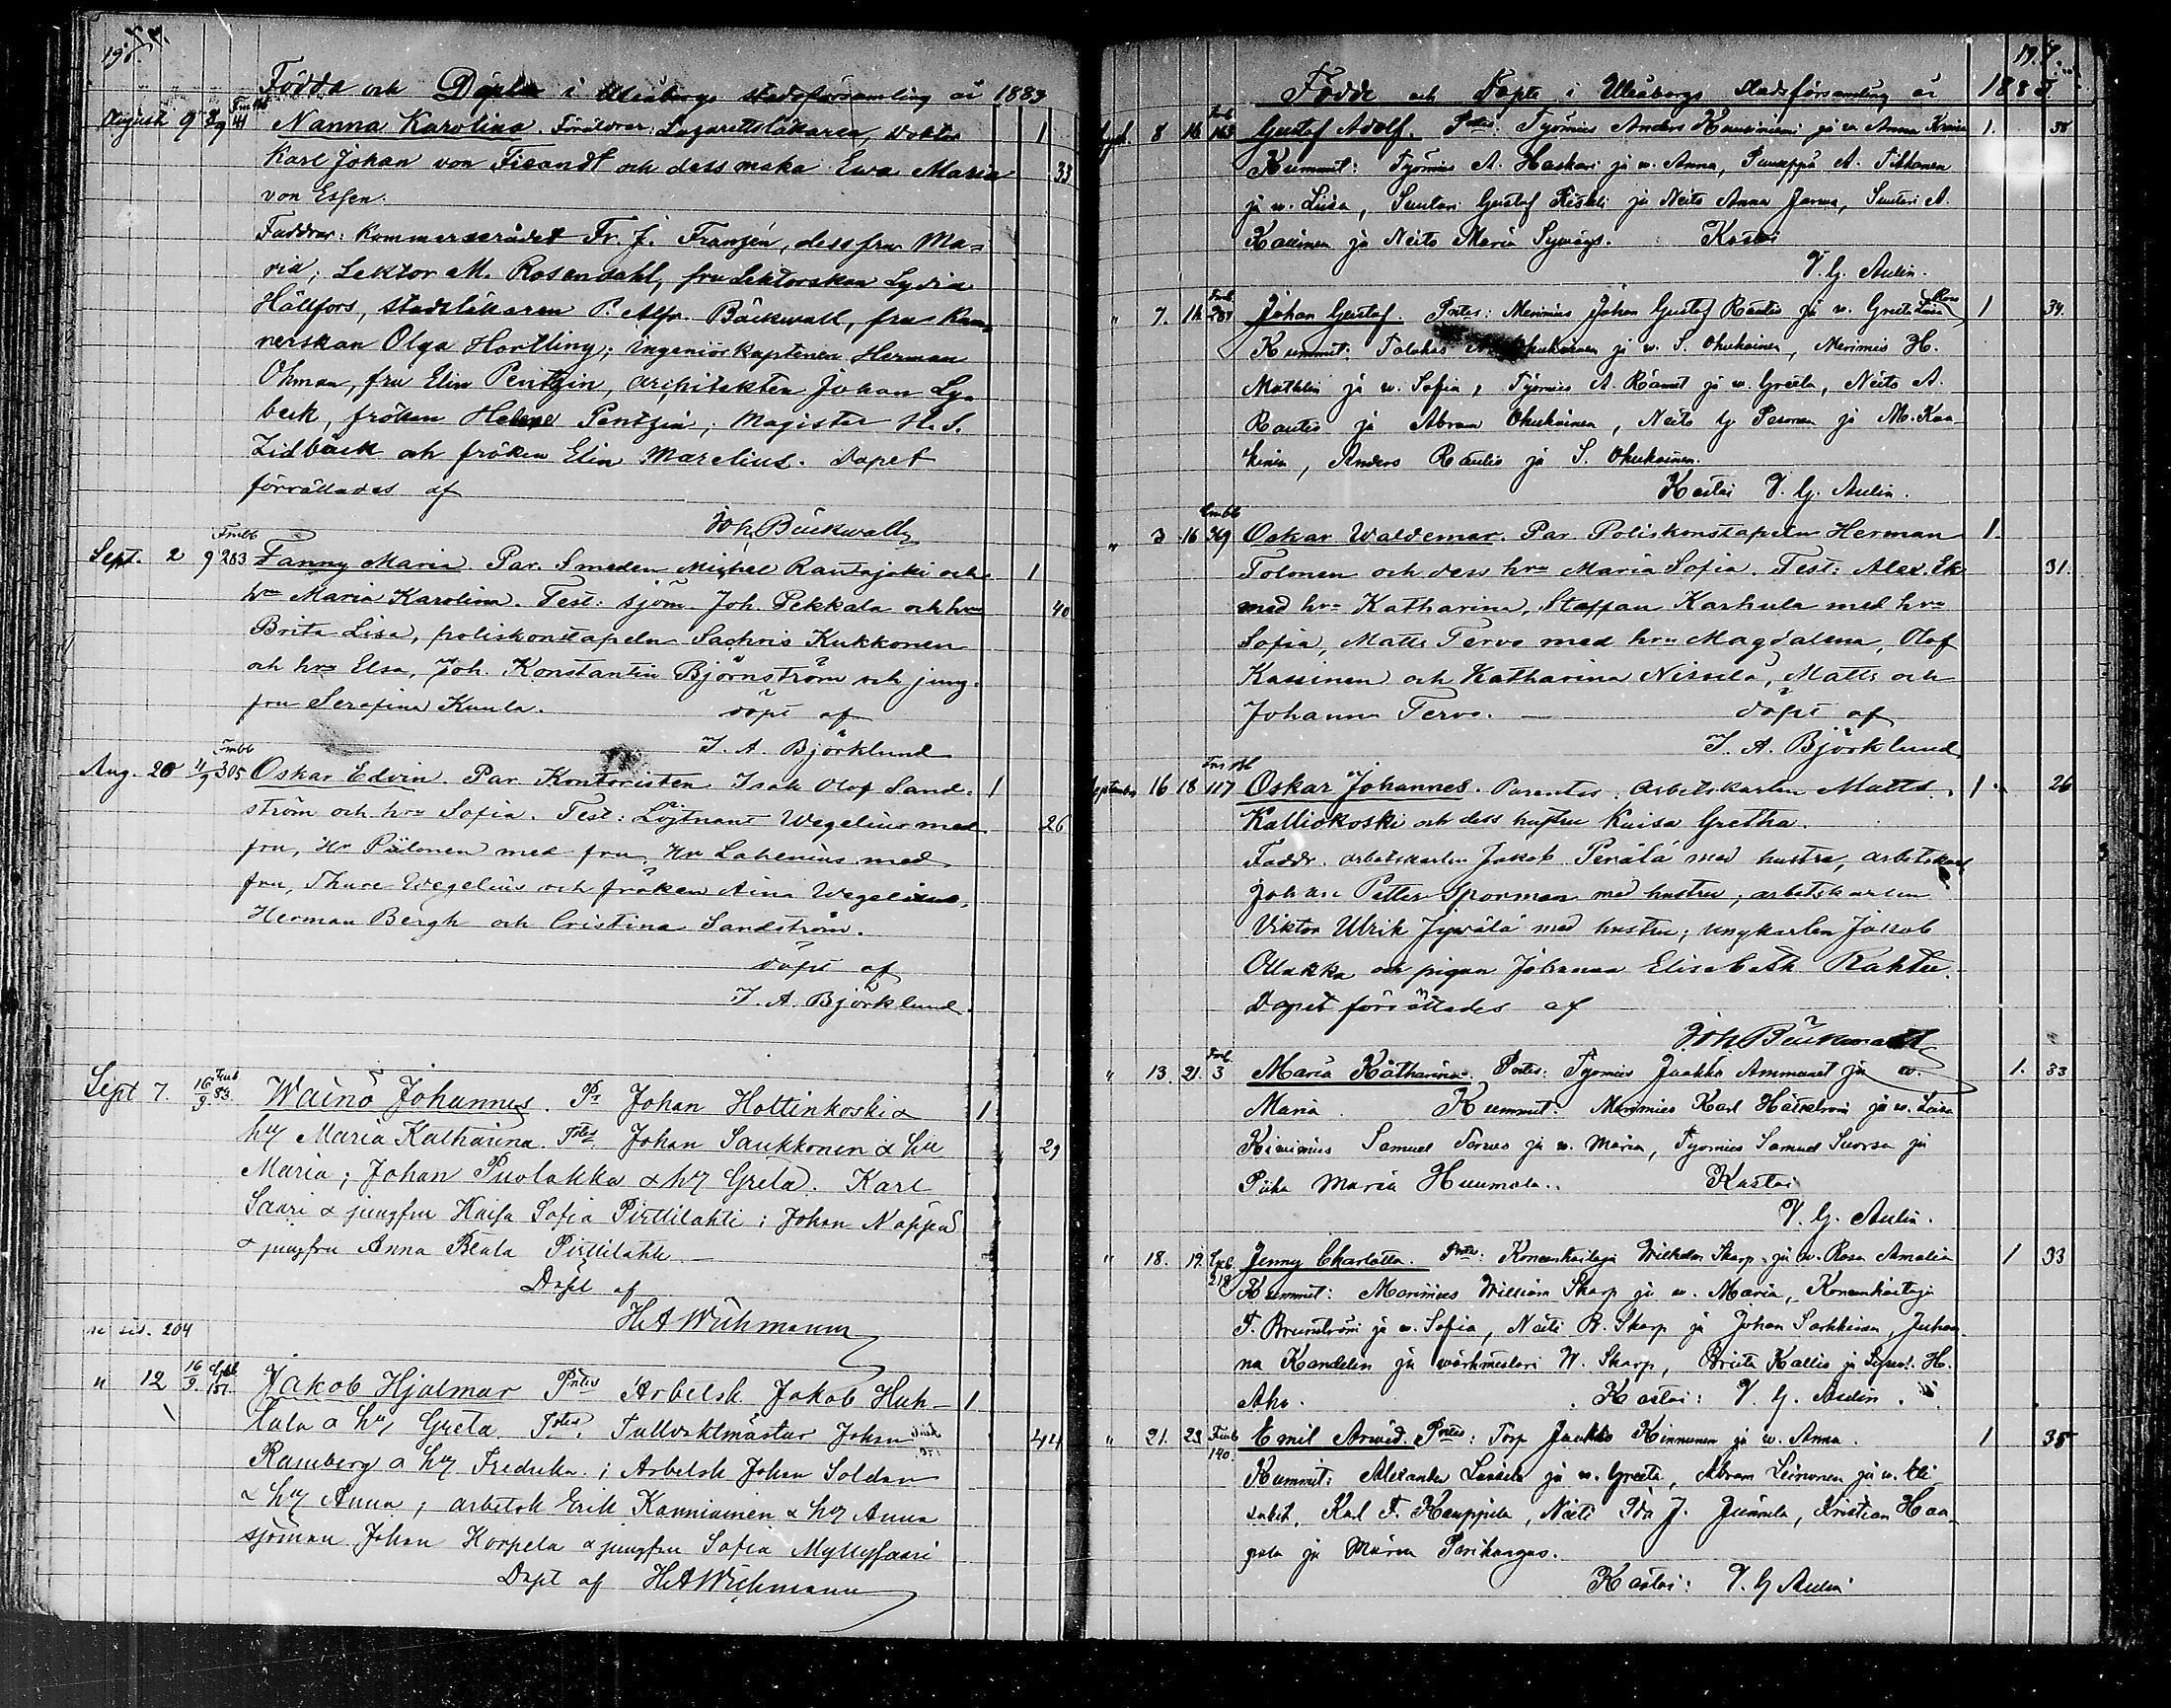 198.
Födda och Döpta i Uleåborgs stadsförsamling år 1883
August 9 29 41 Nanna Karolina. Föräldrar: Lazarettsläkaren, Doktor 1
Karl Johan von Fieandt och dess maka Ewa Maria 33
von Essen.
Faddrar: Kommerserådet Fr. J. Franzén, dess fru Ma-
ria; Lektor M. Rosendahl, fru Lektorskan Lydia
Hällfors, stadsläkaren P. Alfr. Bäckwall, fru Kam-
rerskan Olga Hortling; ingeniörkaptenen Herman
Öhman, fru Elin Pentzin, architekten Johan Ly-
beck, fröken Helene Pentzin; Magister H. S.
Zidbäck och fröken Elin Marelius. Dopet
förrättades af
Joh. Bäckwall
Fmbb
Sept. 2 9 283 Fanny Maria Par. Smeden Michel Rautajoki och 1
hru Maria Karolina. Test: sjöm. Joh. Pekkala och hru 40
Brita Lisa, poliskonstapeln Sachris Kukkonen
och hru Elsa, Joh. Konstantin Björnström och jung-
fru Serafina Kuula. döpt af
J. A. Björklund
Fmbb
Aug. 20 11/9 305 Oskar Edvin. Par. Kontoristen Isak Olof Sand- 1
ström och hru Sofia. Test: Löjtnant Wegelius med 26
fru, Hr Piilonen med fru, Hr Lahenius med
fru, Thure Wegelius och fröken Aina Wegelius,
Herman Bergh och Cristina Sandström.
döpt af
J. A. Björklund.
Sept 7. 16/9 83 Wäinö Johannes. Pr Johan Hottinkoski & 1
hu Maria Katharina. Tstes Johan Saukkonen & hu 29
Maria; Johan Puolakka & hu Greta. Karl
Saari & jungfru Kaisa Sofia Pirttilahti; Johan Nappa
& jungfru Anna Beata Pirttilahti
Döpt af
H A Wichmann
sid. 204
" 12 16/9 151 Jakob Hjalmar Prtes Arbetsk Jakob Huh- 1
tala & hu Greta Tstes. Tullvaktmästar Johan 44
Ramberg & hu Fredrika; Arbetsk Johan Soldan
& hu Anna; arbetsk Erik Kanniainen & hu Anna
sjöman Johan Korpela & jungfru Sofia Myllysaari
Döpt af H A Wichmann
Födde och Döpte i Uleåborgs Stadsförsamling år 1883
8 16 163 Gustaf Adolf. Prtes: Työmies Anders ja w. Anna 1. 38
Kummit: Työmies A. Haskari ja w. Anna, Puuseppä A. Tikkanen
ja w. Liisa, Suutari Gustaf ja Neito Anna Jarva, Suutari A.
Kauinen ja Neito Maria Kastoi
V. G. Aulin.
" 7. Johan Gustaf. Prtes: Merimies Johan Gustaf Rautio ja w. Greta 1 34.
Kummit: Talokas ja w. S. Ohukainen, Merimies H.
Mathlin ja w. Sofia, Työmies A. ja w. Greeta, Neito A.
Rautio ja Abram Ohukainen, Neito G. Pesonen ja M. Kaa-
kinen, Anders Rautio ja S. Ohukainen.
Kastoi V. G. Aulin.
" 3 16 369 Oskar Waldemar. Par. Poliskonstapeln Herman 1.
Tolonen och dess hru Maria Sofia. Test: Alex. Ek 31.
med hru Katharina, Staffan Karhula med hru
Sofia, Matts Tervo med hru Magdalena, Olof
Kassinen och Katharina Nissilä, Matts och
Johanna Tervo. — döpt af
J. A. Björklund
September 16 18 117 Oskar Johannes. Parentes: arbetskarlen Matts 1 26
Kalliokoski och dess hustru Kaisa Gretha.
Faddr. arbetskarlen Jakob Perälä med hustru, arbetskarl
Johan Petter Sporman med hustru, arbetskarlen
Viktor Ulrik Jywälä med hustru; ungkarlen Jakob
Ollakka och pigan Johanna Elisabeth Rahtu.
Dopet förrättades af
Joh. Bäckwall
" 13. 21. 3 Maria Katharina. Prtes: Työmies Jaakko Ammunet ja w. 1. 33
Maria. Kummit: Merimies Karl ja w. Liisa
Samuel Tervo ja w. Maria, Työmies Samuel Suorsa ja
Piika Maria Huumola. Kastoi
V. G. Aulin.
" 18. 19. 218 Jenny Charlotta. Prtes: Koneenhoitaja Wilhelm Skarp ja w. Rosa Amalia 1 33
Kummit: Merimies William Skarp ja w. Maria, Koneenhoitaja
F. Brunström ja w. Sofia, Neiti B. Skarp ja Johan Sarkkinen, Juhan-
na Kandelin ja värkmestari W. Skarp, Briita Kallio ja H.
Aho. Kastoi: V. G. Aulin.
" 21. 23 140. Emil Arwid. Prtes: Torp Jaakko Kinnunen ja w. Anna. 1 38
Kummit: Alexander Lassila ja w. Greeta, Abram Leinonen ja w. Eli-
sabet, Karl F. Kauppila, Neiti Ida J. Junnila, Kristian Haa-
pala ja Maria Parikangas.
Kastoi: V. G Aulin